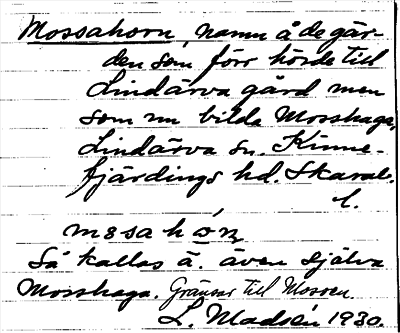 Mossahorn, namn å de går-
den som förr hörde till
Lindärva gård men
som nu bilda Mosshaga,
Lindärva sn. Kinne-
fjärdings hd. Skarab.
l.
Så kallas ä. även själva
Mosshaga. Gränsar till Mossen.
L. Madsén 1930.